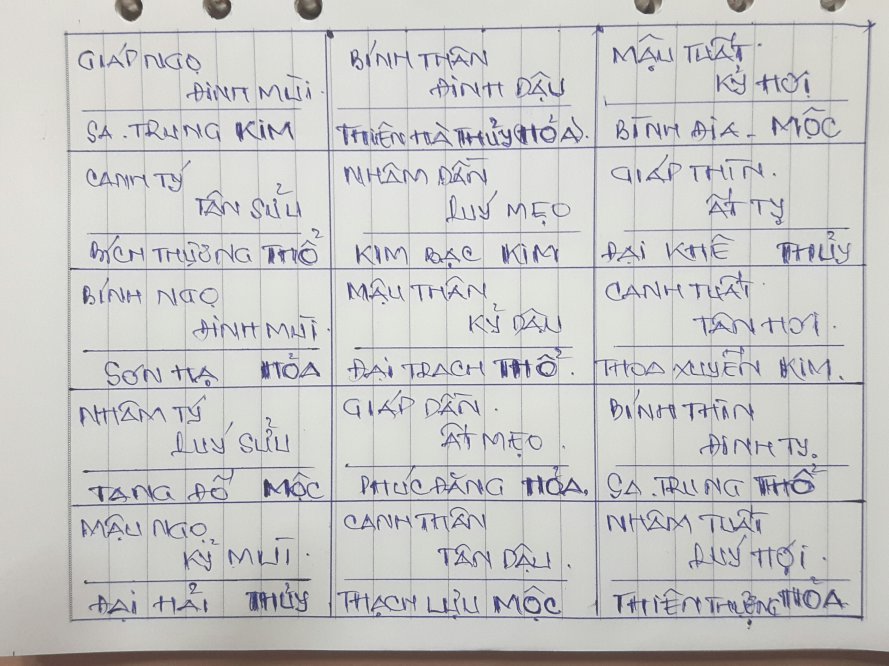 GIÁP NGỌ
ĐINH MÙI.
SA. TRUNG KIM
BÍNH THÂN
ĐINH DẬU
THIÊN HÀ THỦY (HỎA).
MẬU TUẤT.
KỶ HỢI
BÌNH ĐỊA - MỘC
CANH TÝ
TÂN SỬU
BÍCH THƯỢNG THỔ
NHÂM DẦN
QUÝ MẸO
KIM BẠC KIM
GIÁP THÌN.
ẤT TỴ
ĐẠI KHÊ THỦY
BÍNH NGỌ
ĐINH MÙI.
SƠN HẠ HỎA
MẬU THÂN
KỶ DẬU
ĐẠI TRẠCH THỔ.
CANH TUẤT.
TÂN HỢI.
THOA XUYẾN KIM.
NHÂM TÝ
QUÝ SỬU
TANG ĐỐ MỘC
GIÁP DẦN.
ẤT MẸO.
PHÚC ĐĂNG HỎA.
BÍNH THÌN
ĐINH TỴ.
SA. TRUNG THỔ
MẬU NGỌ
KỶ MÙI.
ĐẠI HẢI THỦY
CANH THÂN
TÂN DẬU.
THẠCH LỰU MỘC
NHÂM TUẤT
QUÝ HỢI.
THIÊN THƯỢNG HỎA